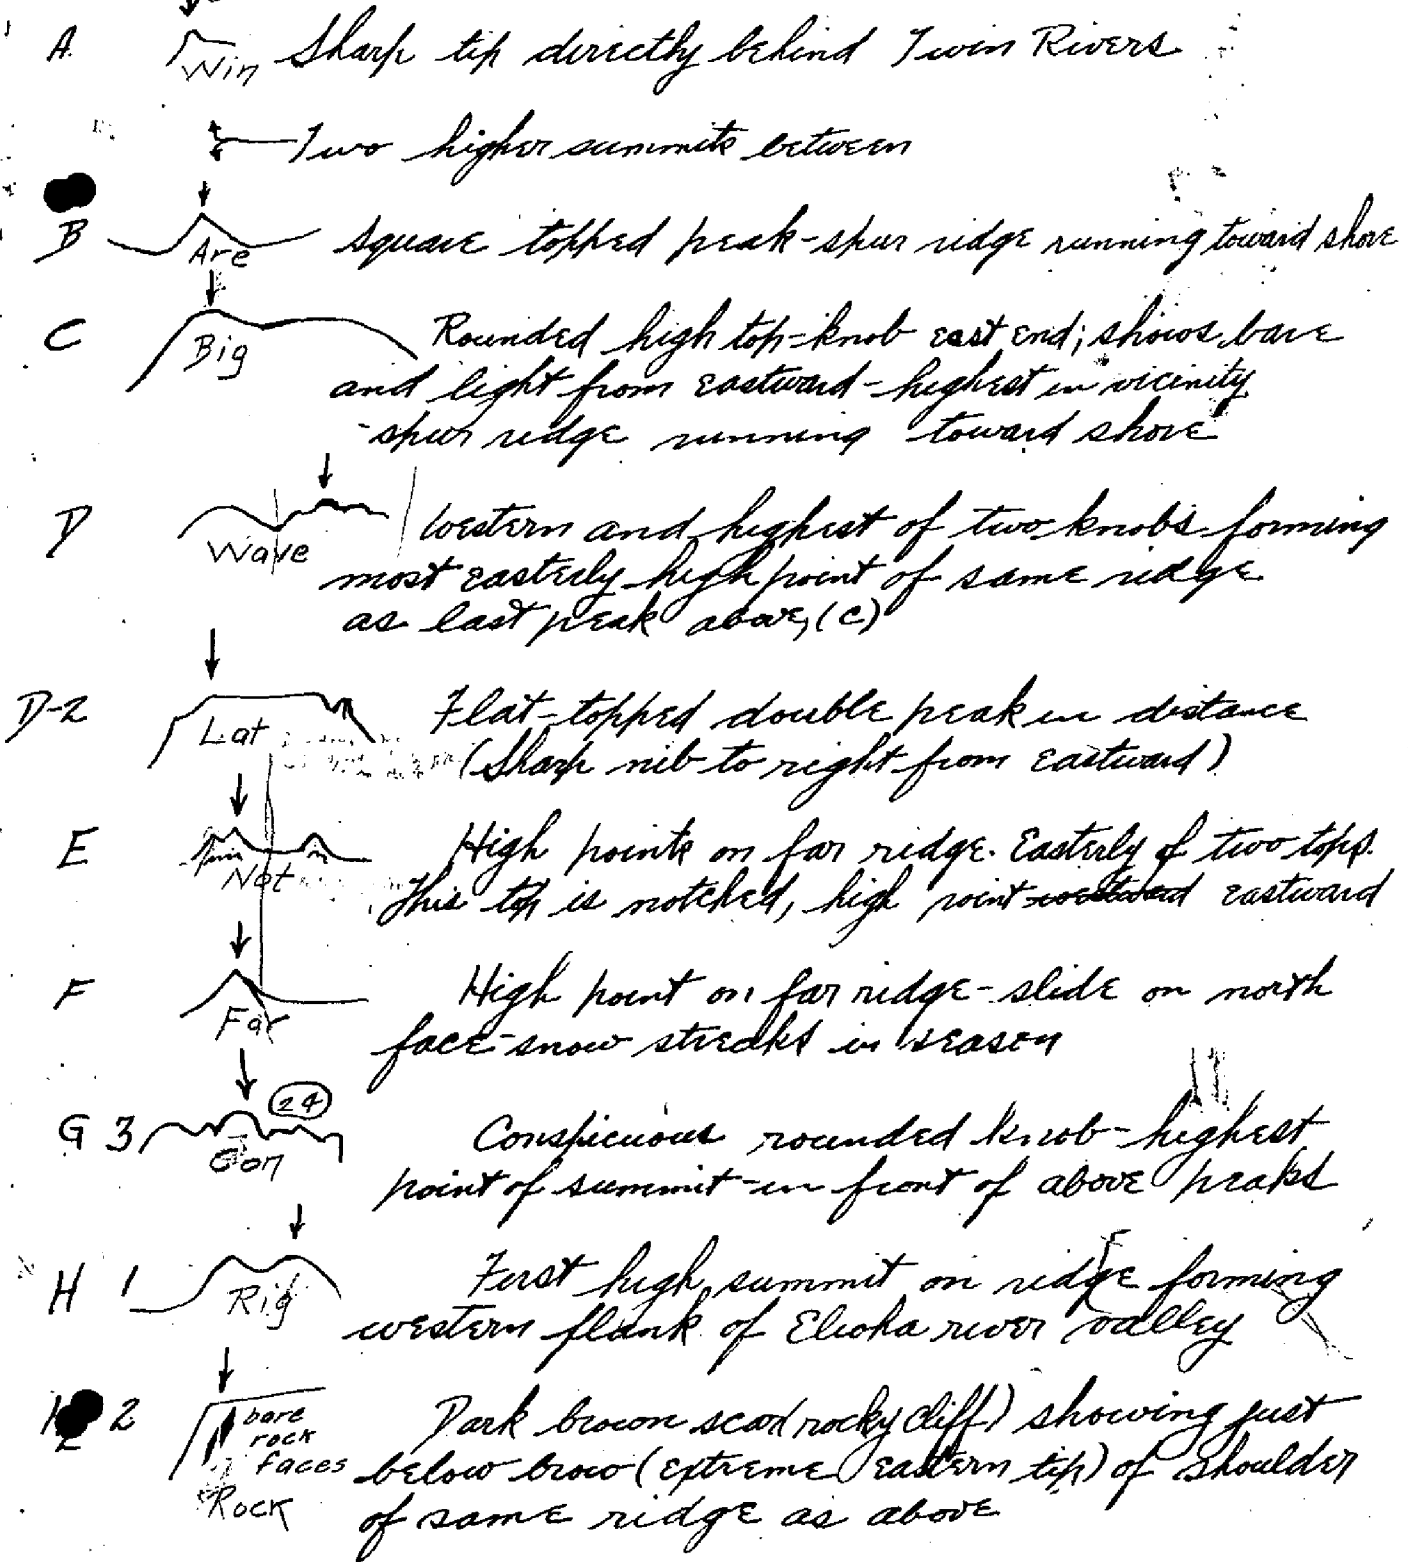 A. Win Sharp tip directly behind Twin Rivers
Two higher summits between
B Are Square topped peak-spur ridge running toward shore
C Big Rounded high top-knob east end; shows bare
and light from eastward-highest in vicinity
-spur ridge running toward shore
D Wave Western and highest of two knobs forming
most easterly high point of same ridge
as last peak above, (C)
D-2 Lat Flat-topped double peak in distance
(Sharp nib to right from eastward)
E Not High points on far ridge. Easterly of two tops.
This top is notched, high point westward eastward
F Far High point on far ridge-slide on north
face-snow streaks in season
G 3 24 Con Conspicuous rounded knob-highest
point of summit-in front of above peaks
H 1 Rig First high summit on ridge forming
western flank of river valley
2 bare Dark brown scar(rocky cliff) showing just
rock
faces below brow (extreme eastern tip) of shoulder
Rock of same ridge as above